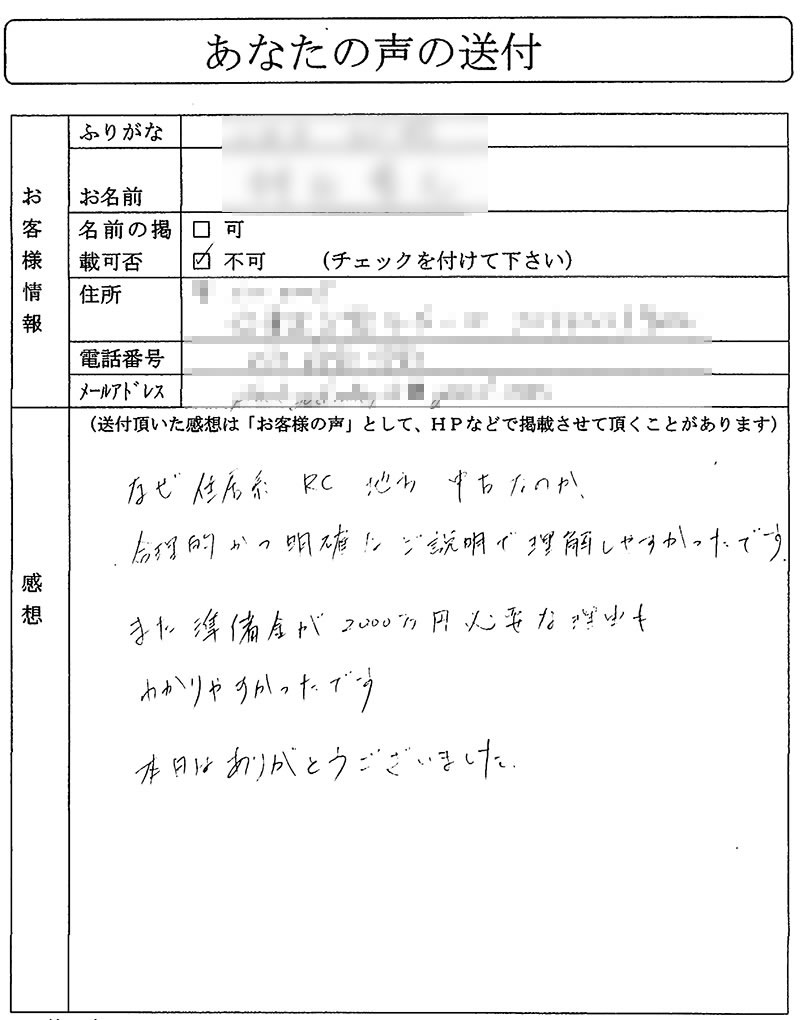 あなたの声の送付
お客様情報
ふりがな
お名前
名前の掲載可否
□ 可
☑ 不可 (チェックを付けて下さい)
住所
電話番号
メールアドレス
感想
(送付頂いた感想は「お客様の声」として、HPなどで掲載させて頂くことがあります)
なぜ 住居系 RC 地方 中古なのか、
合理的かつ明確なご説明で理解しやすかったです
また準備金が2000万円必要な理由も
わかりやすかったです
本日はありがとうございました。